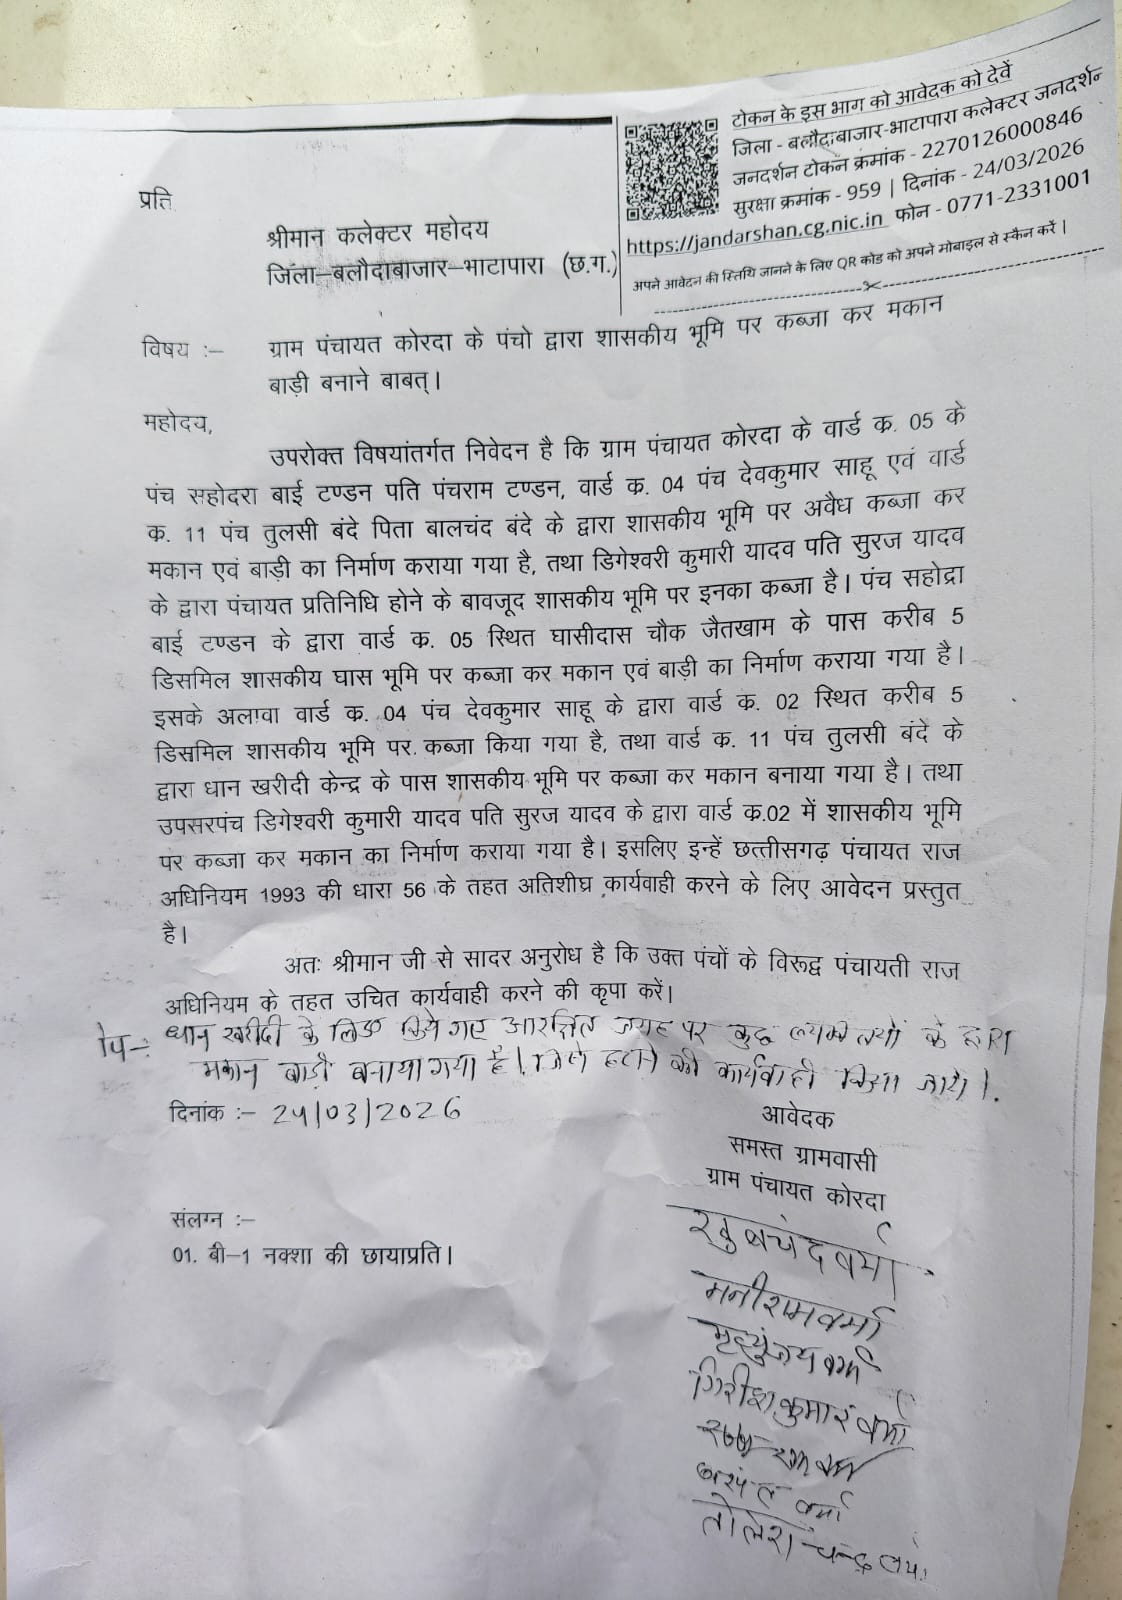 टोकन के इस भाग को आवेदक को देवें
जिला - बलौदाबाजार-भाटापारा कलेक्टर जनदर्शन
जनदर्शन टोकन क्रमांक - 2270126000846
सुरक्षा क्रमांक - 959 | दिनांक - 24/03/2026
https://jandarshan.cg.nic.in फोन - 0771-2331001
अपने आवेदन की स्तिथि जानने के लिए QR कोड को अपने मोबाइल से स्कैन करें |
प्रति
श्रीमान कलेक्टर महोदय
जिला–बलौदाबाजार–भाटापारा (छ.ग.)
विषय :– ग्राम पंचायत कोरदा के पंचो द्वारा शासकीय भूमि पर कब्जा कर मकान
बाड़ी बनाने बाबत्।
महोदय,
उपरोक्त विषयांतर्गत निवेदन है कि ग्राम पंचायत कोरदा के वार्ड क. 05 के
पंच सहोदरा बाई टण्डन पति पंचराम टण्डन, वार्ड क. 04 पंच देवकुमार साहू एवं वार्ड
क. 11 पंच तुलसी बंदे पिता बालचंद बंदे के द्वारा शासकीय भूमि पर अवैध कब्जा कर
मकान एवं बाड़ी का निर्माण कराया गया है, तथा डिगेश्वरी कुमारी यादव पति सुरज यादव
के द्वारा पंचायत प्रतिनिधि होने के बावजूद शासकीय भूमि पर इनका कब्जा है। पंच सहोद्रा
बाई टण्डन के द्वारा वार्ड क. 05 स्थित घासीदास चौक जैतखाम के पास करीब 5
डिसमिल शासकीय घास भूमि पर कब्जा कर मकान एवं बाड़ी का निर्माण कराया गया है।
इसके अलावा वार्ड क. 04 पंच देवकुमार साहू के द्वारा वार्ड क. 02 स्थित करीब 5
डिसमिल शासकीय भूमि पर कब्जा किया गया है, तथा वार्ड क. 11 पंच तुलसी बंदे के
द्वारा धान खरीदी केन्द्र के पास शासकीय भूमि पर कब्जा कर मकान बनाया गया है। तथा
उपसरपंच डिगेश्वरी कुमारी यादव पति सुरज यादव के द्वारा वार्ड क.02 में शासकीय भूमि
पर कब्जा कर मकान का निर्माण कराया गया है। इसलिए इन्हें छत्तीसगढ़ पंचायत राज
अधिनियम 1993 की धारा 56 के तहत अतिशीघ्र कार्यवाही करने के लिए आवेदन प्रस्तुत
है।
अतः श्रीमान जी से सादर अनुरोध है कि उक्त पंचों के विरूद्ध पंचायती राज
अधिनियम के तहत उचित कार्यवाही करने की कृपा करें।
धान खरीदी के लिए किये गए आरक्षित जगह पर कुछ के द्वारा
मकान बाड़ी बनाया गया है। जिसे हटाने की कार्यवाही किया जाये।
दिनांक :– 24/03/2026
आवेदक
समस्त ग्रामवासी
ग्राम पंचायत कोरदा
संलग्न :–
01. बी–1 नक्शा की छायाप्रति।
खुबचंद वर्मा
मनीराम वर्मा
मृत्युंजय वर्मा
गिरीश कुमार वर्मा
वर्मा
वर्मा